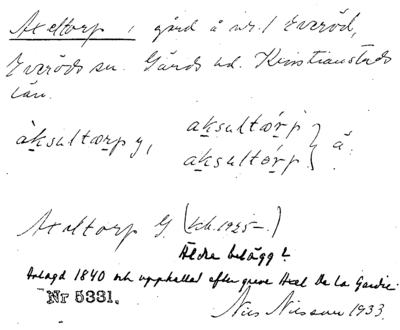 Axeltorp, gård å nr. 1 Everöd,
Everöds sn. Gärds hd. Kristianstads
län.
àksultærp y, aksultǽrp } å.
aksultórp
Axeltorp G. (kch. 1925–)
Äldre belägg?
Anlagd 1840 och uppkallad efter greve Axel De la Gardie.
Nr 5331.
Nils Nilsson 1933.